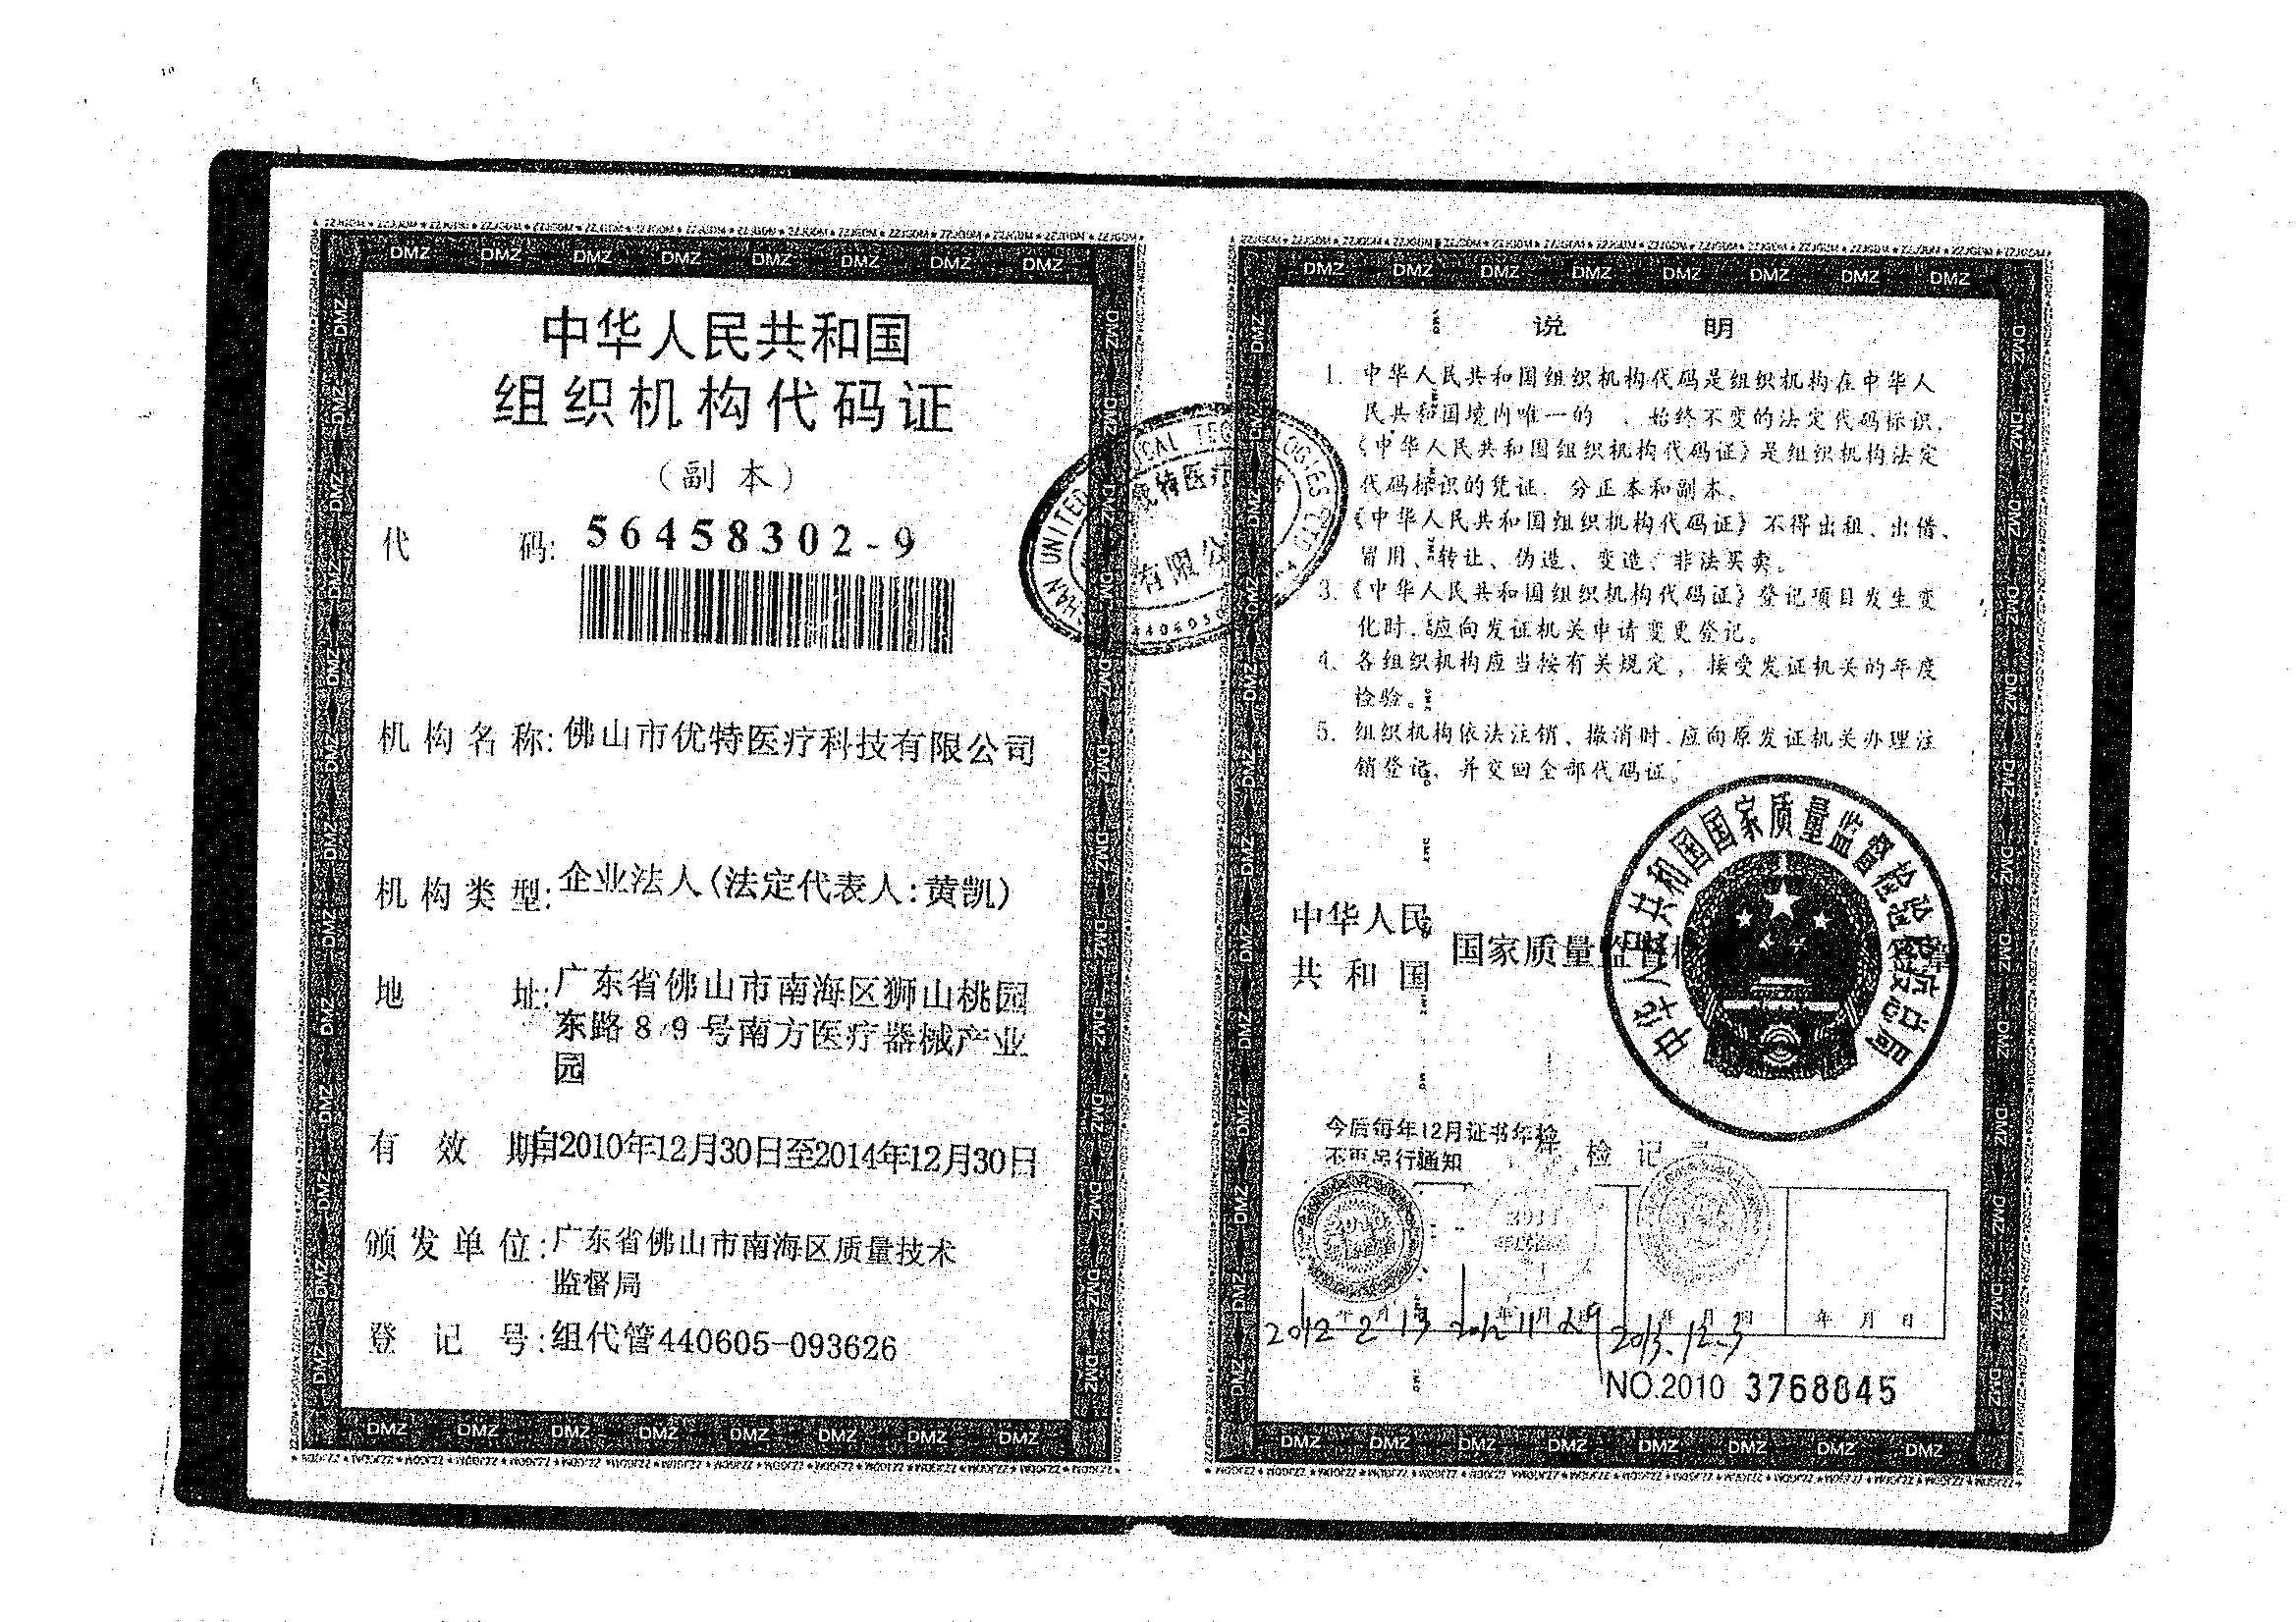 中华人民共和国
组织机构代码证
（副 本）
代 码: 56458302-9
机构名称: 佛山市优特医疗科技有限公司
机构类型: 企业法人(法定代表人:黄凯)
地 址: 广东省佛山市南海区狮山桃园
东路89号南方医疗器械产业
园
有效期 自2010年12月30日至2014年12月30日
颁发单位: 广东省佛山市南海区质量技术
监督局
登记号: 组代管440605-093626
说 明
1. 中华人民共和国组织机构代码是组织机构在中华人
民共和国境内唯一的、始终不变的法定代码标识,
《中华人民共和国组织机构代码证》是组织机构法定
代码标识的凭证, 分正本和副本。
《中华人民共和国组织机构代码证》不得出租、出借、
冒用、转让、伪造、变造、非法买卖。
3. 《中华人民共和国组织机构代码证》登记项目发生变
化时, 应向发证机关申请变更登记。
4. 各组织机构应当按有关规定, 接受发证机关的年度
检验。
5. 组织机构依法注销、撤消时, 应向原发证机关办理注
销登记, 并交回全部代码证。
中华人民
共和国
国家质量监督
中华人民共和国国家质量监督检验检疫总局
今后每年12月证书年检
行通知
检 记
2010
2011
2012 年 2 月 13
2012 11 月 29
2013.12.3
年 月 日
NO.2010 3768845
UNITED
有限公
DMZ